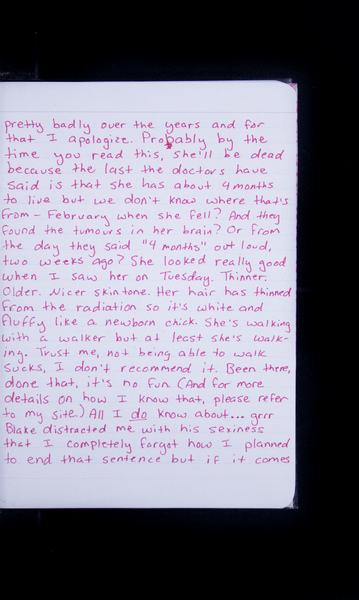 pretty badly over the years and for
that I apologize. Probably by the
time you read this, she'll be dead
because the last the doctors have
said is that she has about 4 months
to live but we don't know where that's
from - February when she fell? And they
found the tumours in her brain? Or from
the day they said "4 months" out loud,
two weeks ago? She looked really good
when I saw her on Tuesday. Thinner.
Older. Nicer skin tone. Her hair has thinned
from the radiation so it's white and
fluffy like a newborn chick. She's walking
with a walker but at least she's walk-
ing. Trust me, not being able to walk
sucks, I don't recommend it. Been there,
done that, it's no fun (And for more
details on how I know that, please refer
to my site.) All I do know about... grrr
Blake distracted me with his sexiness
that I completely forgot how I planned
to end that sentence but if it comes